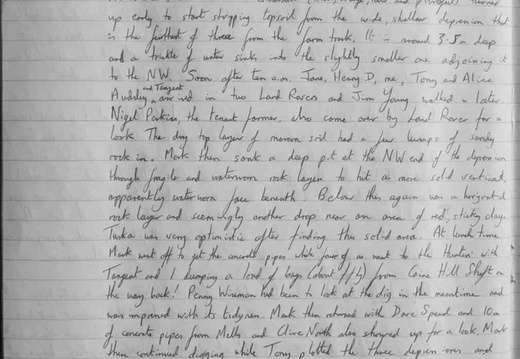 up early to start stripping topsoil from the wide, shallow depression that
is the furthest of three from the farm track. It is around 3.5m deep
and a trickle of water sinks into the slightly smaller one adjoining it
to the NW. Soon after ten a.m. Jane, Henry D, me, Tony and Alice
Audsley and Tangent arrived in two Land Rovers and Jim Young walked in later.
Nigel Parkins, the tenant farmer, also came over by Land Rover for a
look. The dry top layer of soil had a few lumps of sandy
rock in. Mark then sank a deep pit at the NW end of the depression
through fragile and waterworn rock layers to hit a more solid vertical,
apparently waterworn face beneath. Below this again was a horizontal
rock layer and seemingly another drop near an area of red, sticky clay.
was very optimistic after finding this solid area. At lunch time
Mark went off to get the concrete pipes while four of us went to the Hunters' with
Tangent and I dumping a load of bags (about ) from Hill Shaft on
the way back! Penny had been to look at the dig in the meantime and
was impressed with its tidyness. Mark then returned with Dave Speed and 10m
of concrete pipes from Mells and Clive North also showed up for a look. Mark
then continued digging while Tony plotted the three depressions and